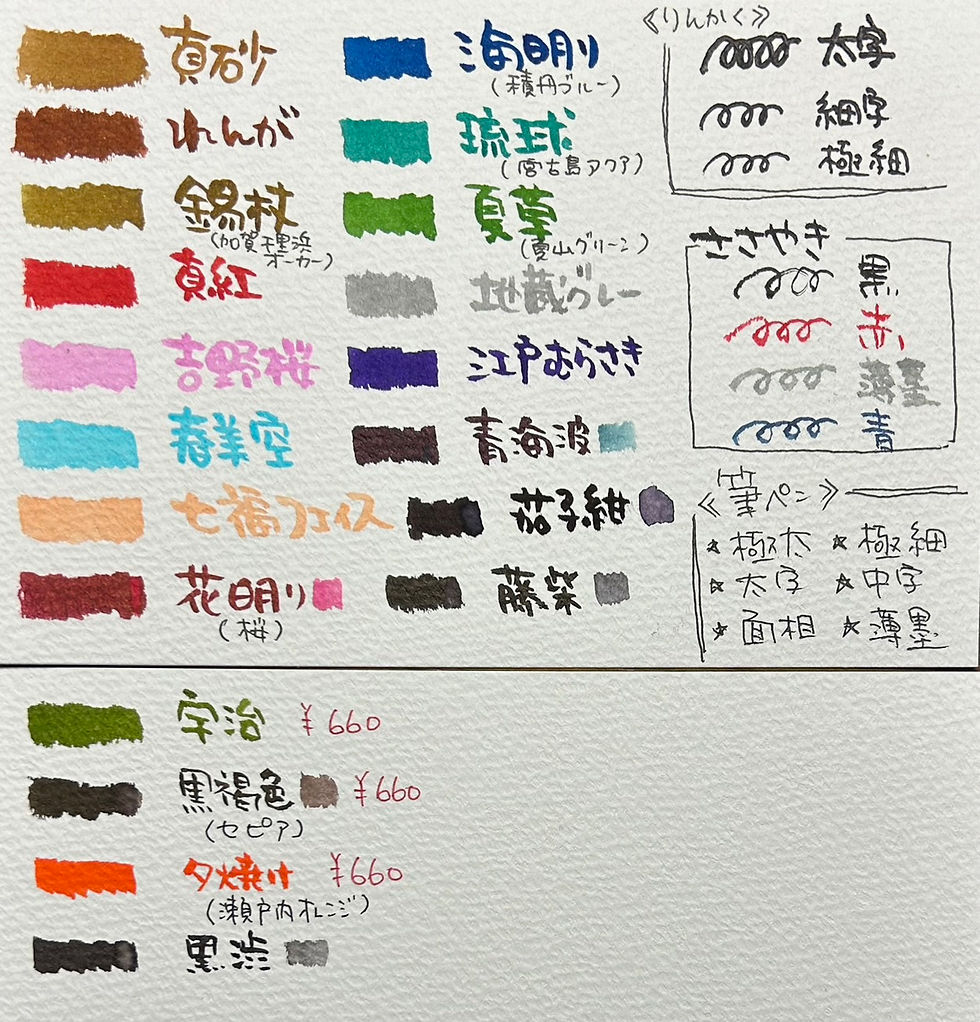 真砂
れんが
錫杖
(加賀千里浜
オーカー)
真紅
吉野桜
春美空
七福フェイス
花明り
(桜)
海明り
(積丹ブルー)
琉球
(宮古島アクア)
夏草
(夏山グリーン)
地蔵グレー
江戸むらさき
青海波
茄子紺
藤柴
《りんかく》
太字
細字
極細
ささやき
黒
赤
薄墨
青
《筆ペン》
☆極太 ☆極細
☆太字 ☆中字
☆面相 ☆薄墨
宇治 ¥660
黒褐色 ¥660
(セピア)
夕焼け ¥660
(瀬戸内オレンジ)
黒渋